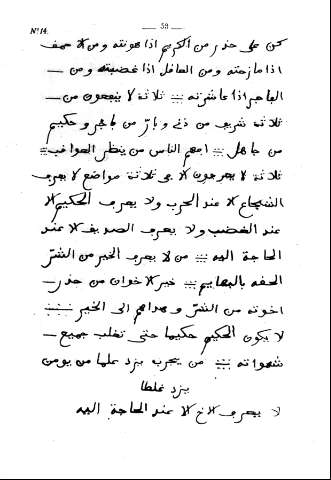 — 58 —
Nº 14.
كن على حذر من الكريم اذا هونته ومن الاحمق
اذا مازحته ومن العاقل اذا غضبته ومن —
الفاجر اذا عاشرته ثلاثة لا ينصفون من —
ثلاثة شريف من دني وبارّ من فاجر وحكيم
من جاهل افهم الناس من ينظر العواقب
ثلاثة لا يعرفون الا في ثلاثة مواضع لا يعرف
الشجاع الا عند الحرب ولا يعرف الحكيم الا
عند الغضب ولا يعرف الصديق الا عند
الحاجة اليه من لا يعرف الخير من الشرّ
الحقه بالبهايم خير الاخوان من حذر —
اخوته من الشرّ وهداهم الى الخير
لا يكون الحكيم حكيما حتى تغلب جميع —
شهواته من يجرب يزد علما من يومن
يزد غلطا
لا يعرف الاخ الا عند الحاجة اليه